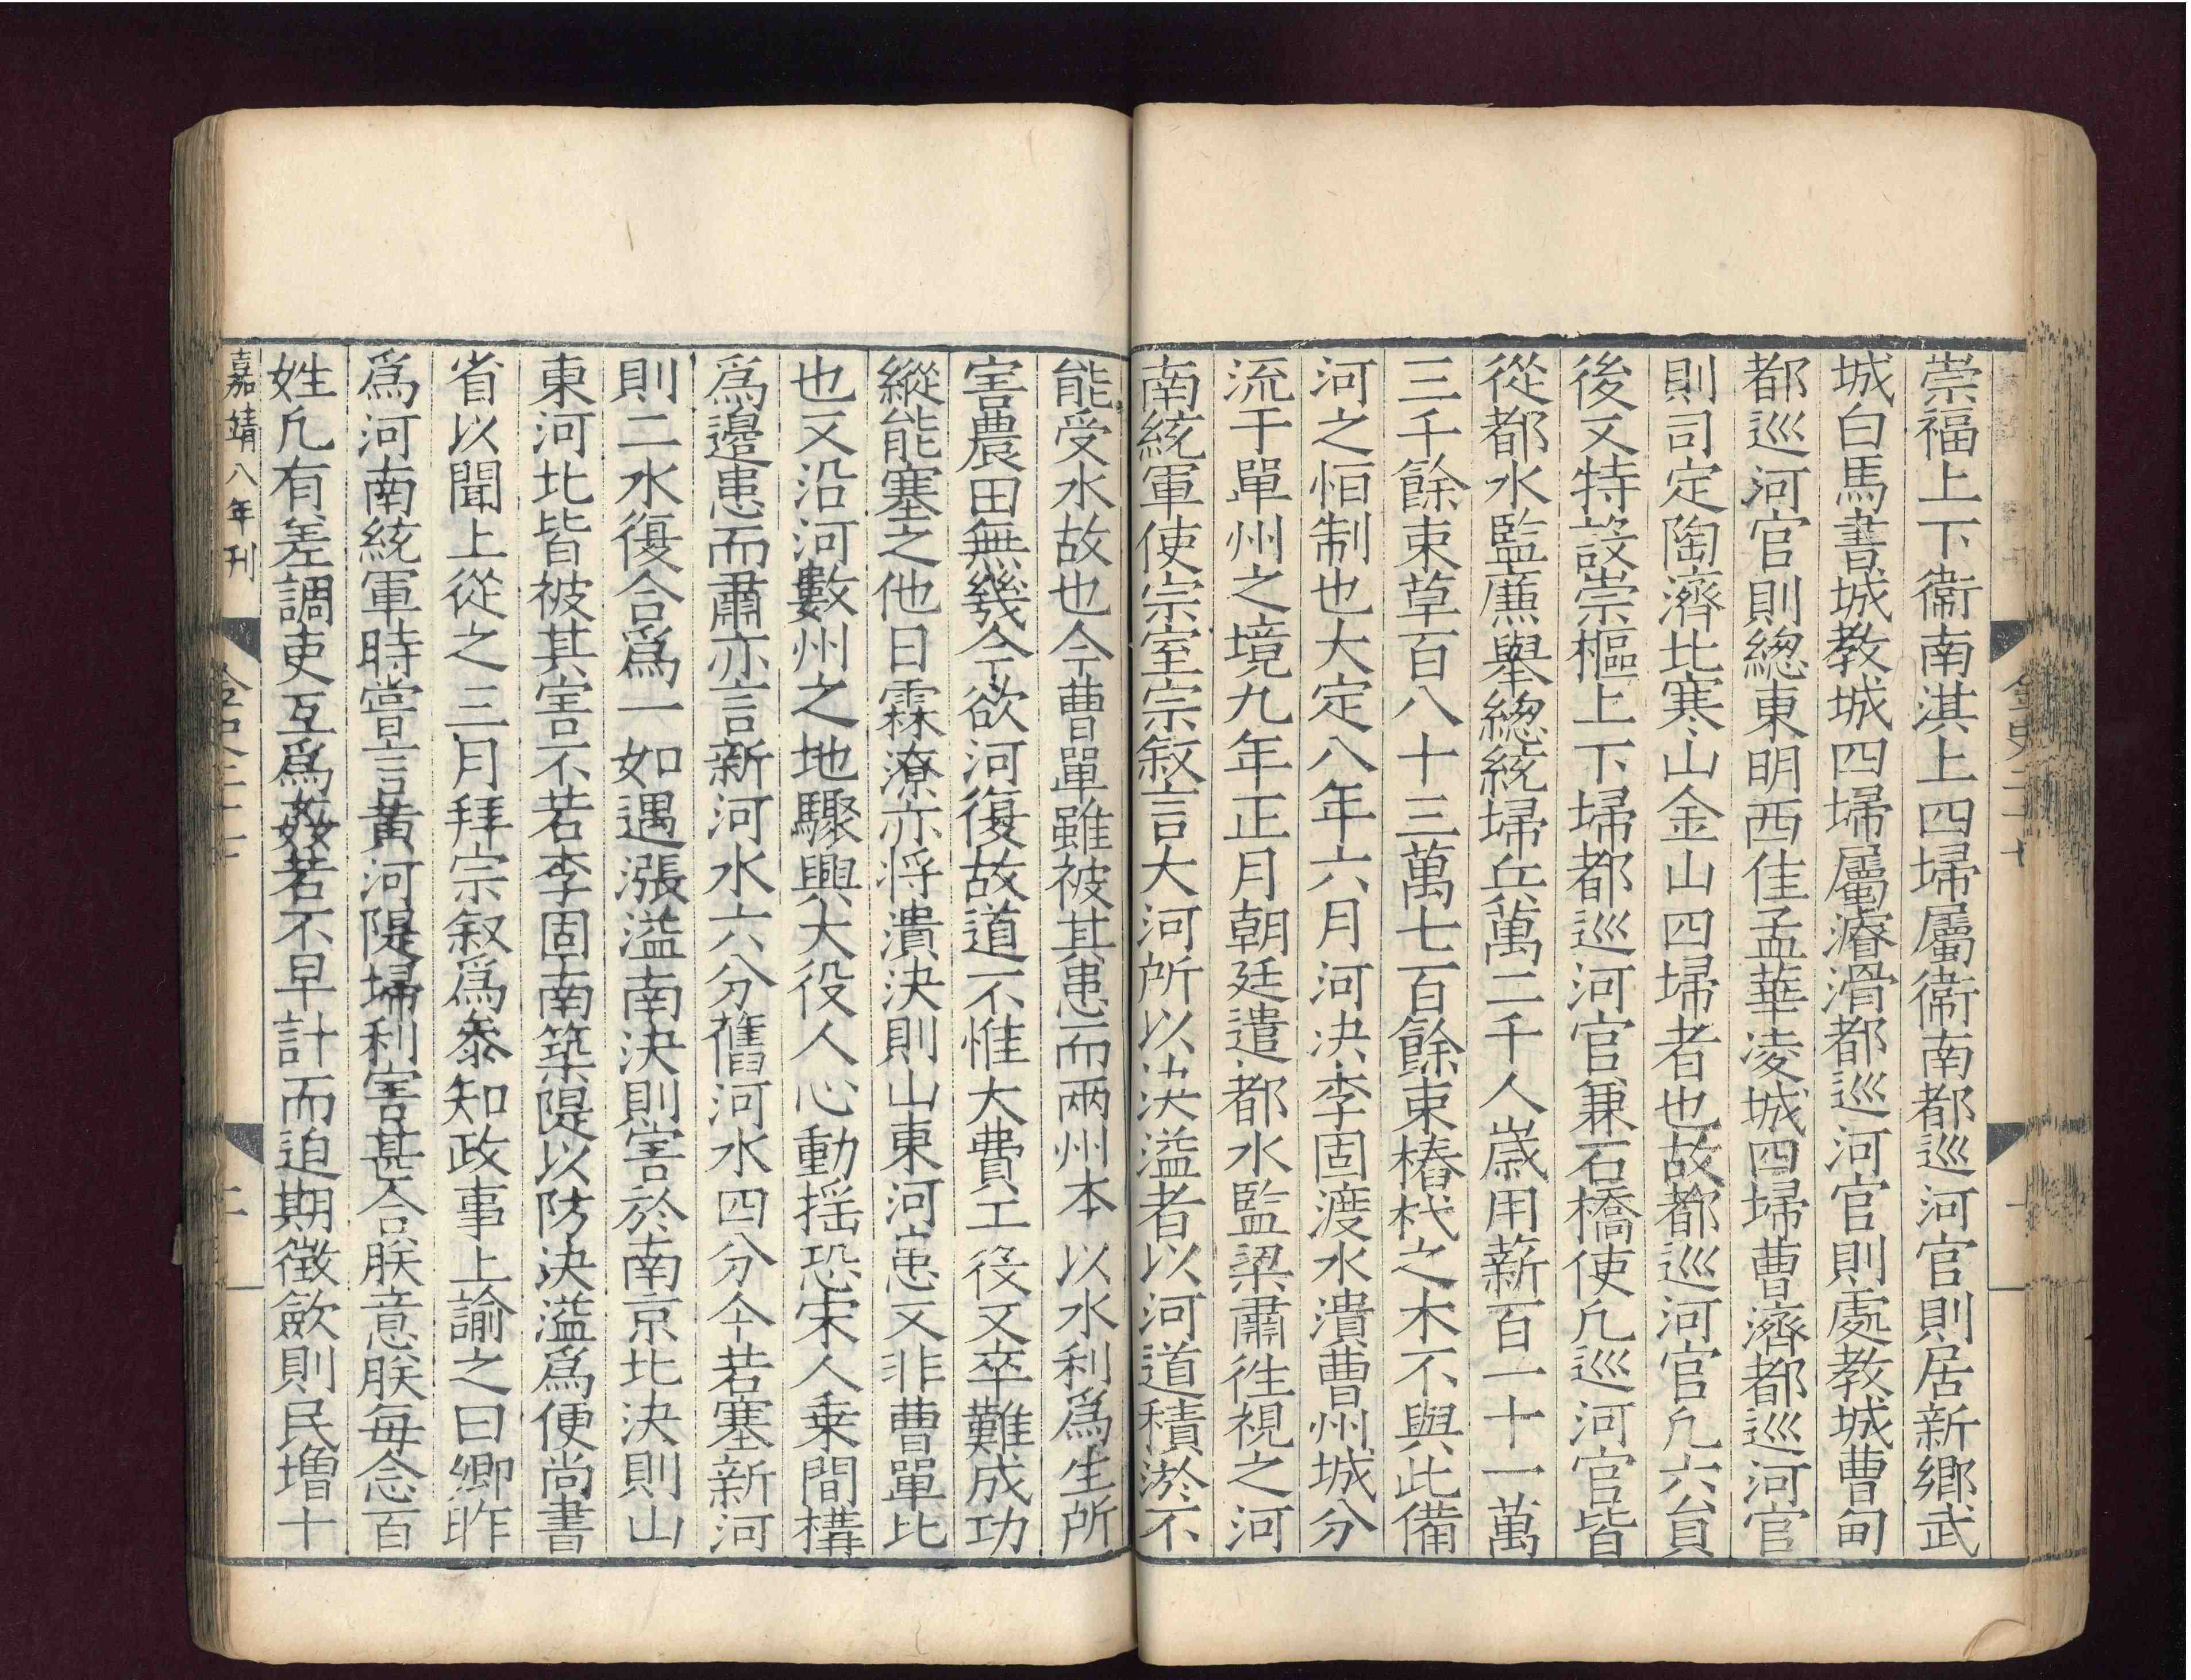 崇福上下衞南淇上四埽屬衞南都巡河官則居新鄉武
城白馬書城教城四埽屬濬滑都巡河官則處教城曹甸
都巡河官則總東明西佳孟華凌城四埽曹濟都巡河官
則司定陶濟北寒山金山四埽者也故都巡河官凢六員
後又特設崇樞上下埽都巡河官兼石橋使凢巡河官皆
從都水監廉舉總統埽兵萬二千人嵗用薪百一十一萬
三千餘束草百八十三萬七百餘束樁杙之木不與此備
河之恒制也大定八年六月河决李固渡水潰曹州城分
流于單州之境九年正月朝廷遣都水監梁肅徃視之河
南統軍使宗室宗叙言大河所以决溢者以河道積淤不
能受水故也今曹單雖被其患而兩州本以水利爲生所
害農田無幾今欲河復故道不惟大費工役又卒難成功
縱能塞之他日霖潦亦將潰決則山東河患又非曹單比
也又沿河數州之地驟興大役人心動揺恐宋人乗間構
爲邊患而肅亦言新河水六分舊河水四分今若塞新河
則二水復合爲一如遇漲溢南決則害於南京北決則山
東河北皆被其害不若李固南築隄以防決溢爲便尚書
省以聞上從之三月拜宗叙爲叅知政事上諭之曰卿昨
爲河南統軍時嘗言黄河隄埽利害甚合朕意朕每念百
姓凢有差調吏互爲姦若不早計而迫期徵歛則民増十
嘉靖八年刊
金史二十七